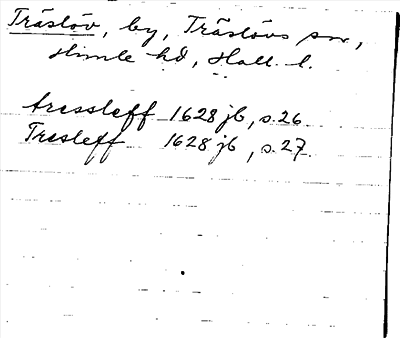 Träslöv, by, Träslövs sn,
Himle hd, Hall. l.
tressleff 1628 jb, s. 26
Tresleff 1628 jb, s. 27.